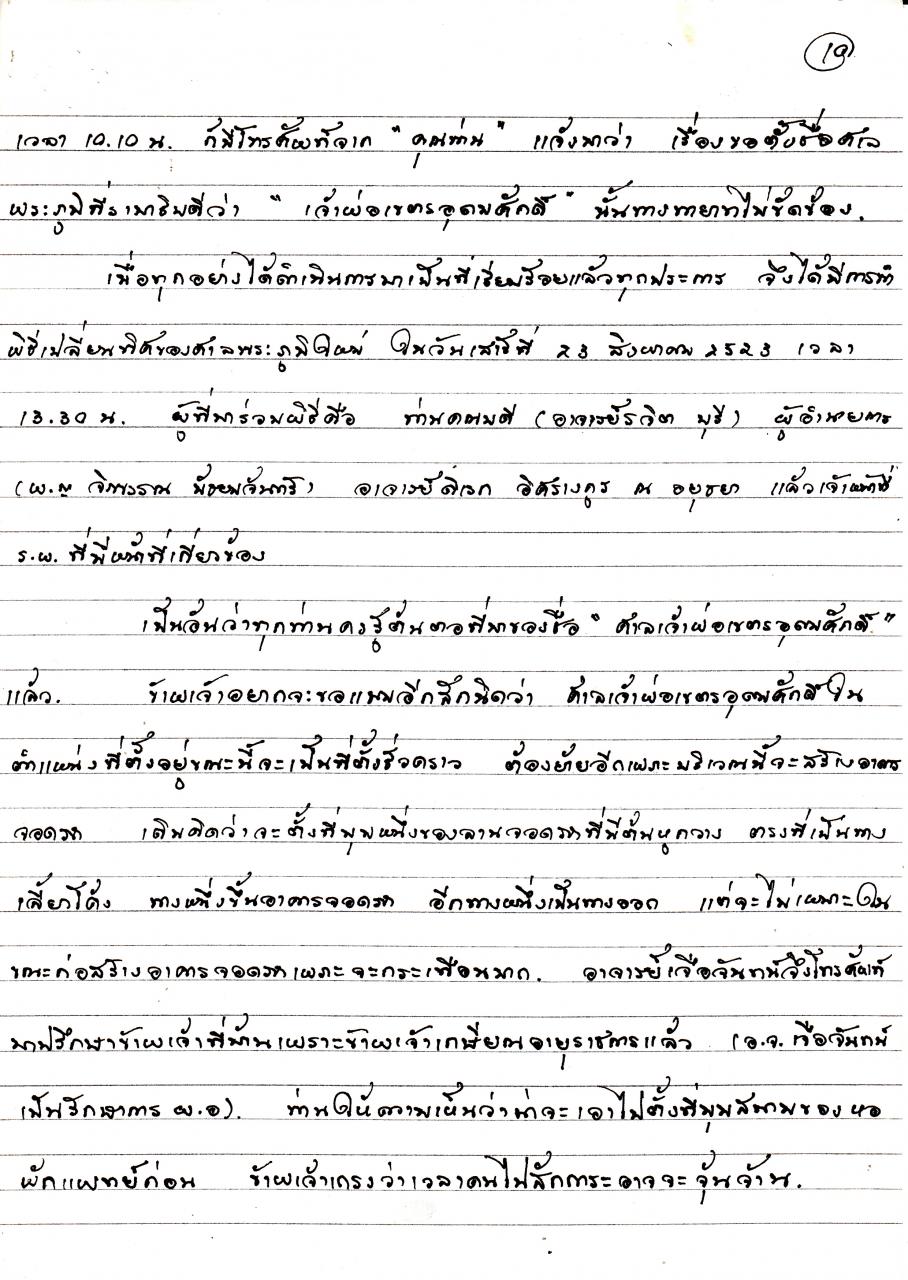 10
เวลา 10.10 น. ก็มีโทรศัพท์จาก "คุณท่าน" แจ้งมาว่า เรื่องขอตั้งชื่อศาล
พระภูมิที่รามาธิบดีว่า "เจ้าพ่อเขตรอุดมศักดิ์" นั้นทางทายาทไม่ขัดข้อง.
เมื่อทุกอย่างได้ดำเนินการมาเป็นที่เรียบร้อยแล้วทุกประการ จึงได้มีการทำ
พิธีเปลี่ยนทิศของศาลพระภูมิใหม่ ในวันเสาร์ที่ 23 สิงหาคม 2523 เวลา
13.30 น. ผู้ที่มาร่วมพิธีคือ ท่านคณบดี (อาจารย์รวิต บุรี) ผู้อำนวยการ
(พ.ญ จิพรรณ มัธยมจันทร์) อาจารย์ดิเรก อิศรางกูร ณ อยุธยา แล้วเจ้าหน้าที่
ร.พ. ที่มีหน้าที่เกี่ยวข้อง
เป็นอันว่าทุกท่านคงรู้ต้นตอที่มาของชื่อ "ศาลเจ้าพ่อเขตรอุดมศักดิ์"
แล้ว. ข้าพเจ้าอยากจะขอแถมอีกสักนิดว่า ศาลเจ้าพ่อเขตรอุดมศักดิ์ใน
ตำแหน่งที่ตั้งอยู่ขณะนี้จะเป็นที่ตั้งชั่วคราว ต้องย้ายอีกเพราะบริเวณนี้จะสร้างอาคาร
จอดรถ เดิมคิดว่าจะตั้งที่มุมหนึ่งของลานจอดรถที่มีต้นหูกวาง ตรงที่เป็นทาง
เลี้ยวโค้ง ทางหนึ่งขึ้นอาคารจอดรถ อีกทางหนึ่งเป็นทางออก แต่จะไม่เหมาะใน
ขณะก่อสร้างอาคารจอดรถเพราะจะกระเทือนมาก. อาจารย์เจือจันทน์จึงโทรศัพท์
มาปรึกษาข้าพเจ้าที่บ้านเพราะข้าพเจ้าเกษียณอายุราชการแล้ว (อ.จ. เจือจันทน์
เป็นรักษาการ ผ.อ). ท่านให้ความเห็นว่าน่าจะเอาไปตั้งที่มุมสนามของหอ
พักแพทย์ก่อน ข้าพเจ้าเกรงว่าเวลาคนไปสักการะอาจจะจุ้นจ้าน.